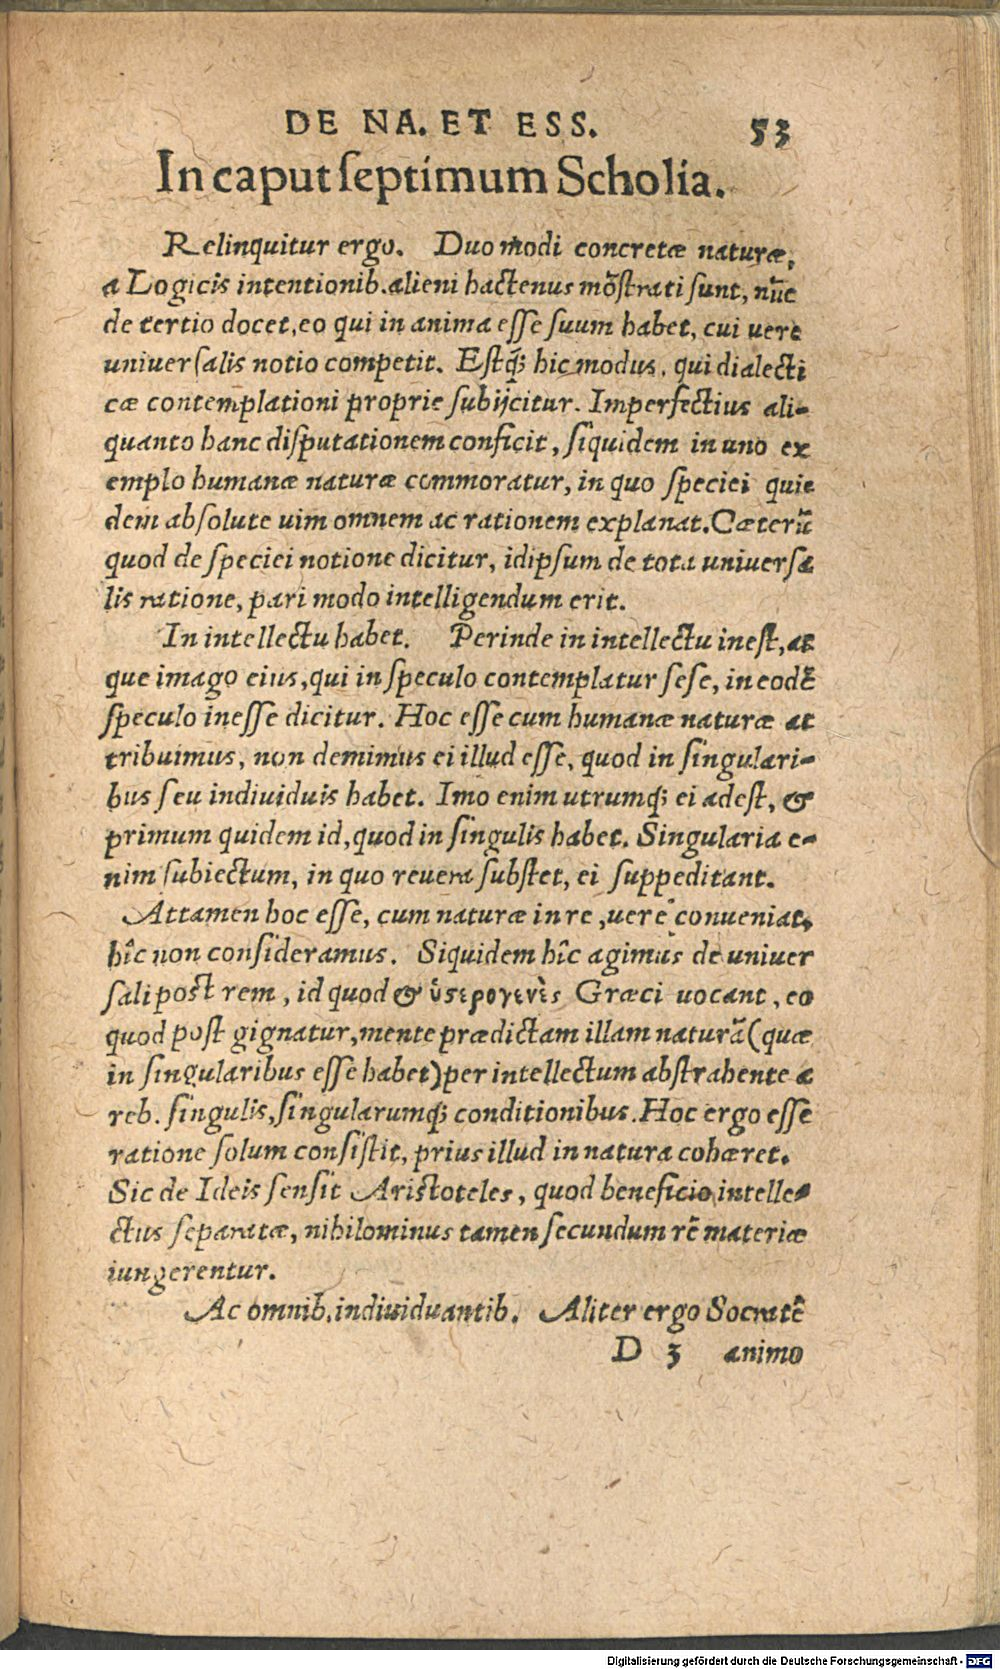 DE NA. ET ESS. 53
In caput ſeptimum Scholia.
Relinquitur ergo. Duo modi concretæ naturæ,
a Logicis intentionib. alieni hactenus mõſtrati ſunt, nũc
de tertio docet, eo qui in anima eſſe ſuum habet, cui vere
univerſalis notio competit. Eſtq́; hic modus, qui dialecti
cæ contemplationi proprie ſubijcitur. Imperfectius ali-
quanto hanc diſputationem conficit, ſiquidem in uno ex
emplo humanæ naturæ commoratur, in quo ſpeciei qui-
dem abſolute uim omnem ac rationem explanat. Cæterũ
quod de ſpeciei notione dicitur, idipſum de tota univerſa
lis ratione, pari modo intelligendum erit.
In intellectu habet. Perinde in intellectu ineſt, at
que imago eius, qui in ſpeculo contemplatur ſeſe, in eodẽ
ſpeculo ineſſe dicitur. Hoc eſſe cum humanæ naturæ at
tribuimus, non demimus ei illud eſſe, quod in ſingulari-
bus ſeu individuis habet. Imo enim utrumq́; ei adeſt, &
primum quidem id, quod in ſingulis habet. Singularia e-
nim ſubiectum, in quo revera ſubſtet, ei ſuppeditant.
Attamen hoc eſſe, cum naturæ in re, vere conveniat,
hîc non conſideramus. Siquidem hîc agimus de univer
ſali post rem, id quod & ὑστερογενὲς Græci vocant, eo
quod poſt gignatur, mente prædictam illam naturã (quæ
in ſingularibus eſſe habet) per intellectum abſtrahente a
reb. ſingulis, ſingularumq́; conditionibus. Hoc ergo eſſe
ratione ſolum conſiſtit, prius illud in natura cohæret.
Sic de Ideis ſenſit Ariſtoteles, quod beneficio intelle-
ctus ſeparatæ, nihilominus tamen ſecundum rẽ materiæ
iungerentur.
Ac omnib. individuantib. Aliter ergo Socratẽ
D 3 animo
Digitalisierung gefördert durch die Deutsche Forschungsgemeinschaft - DFG